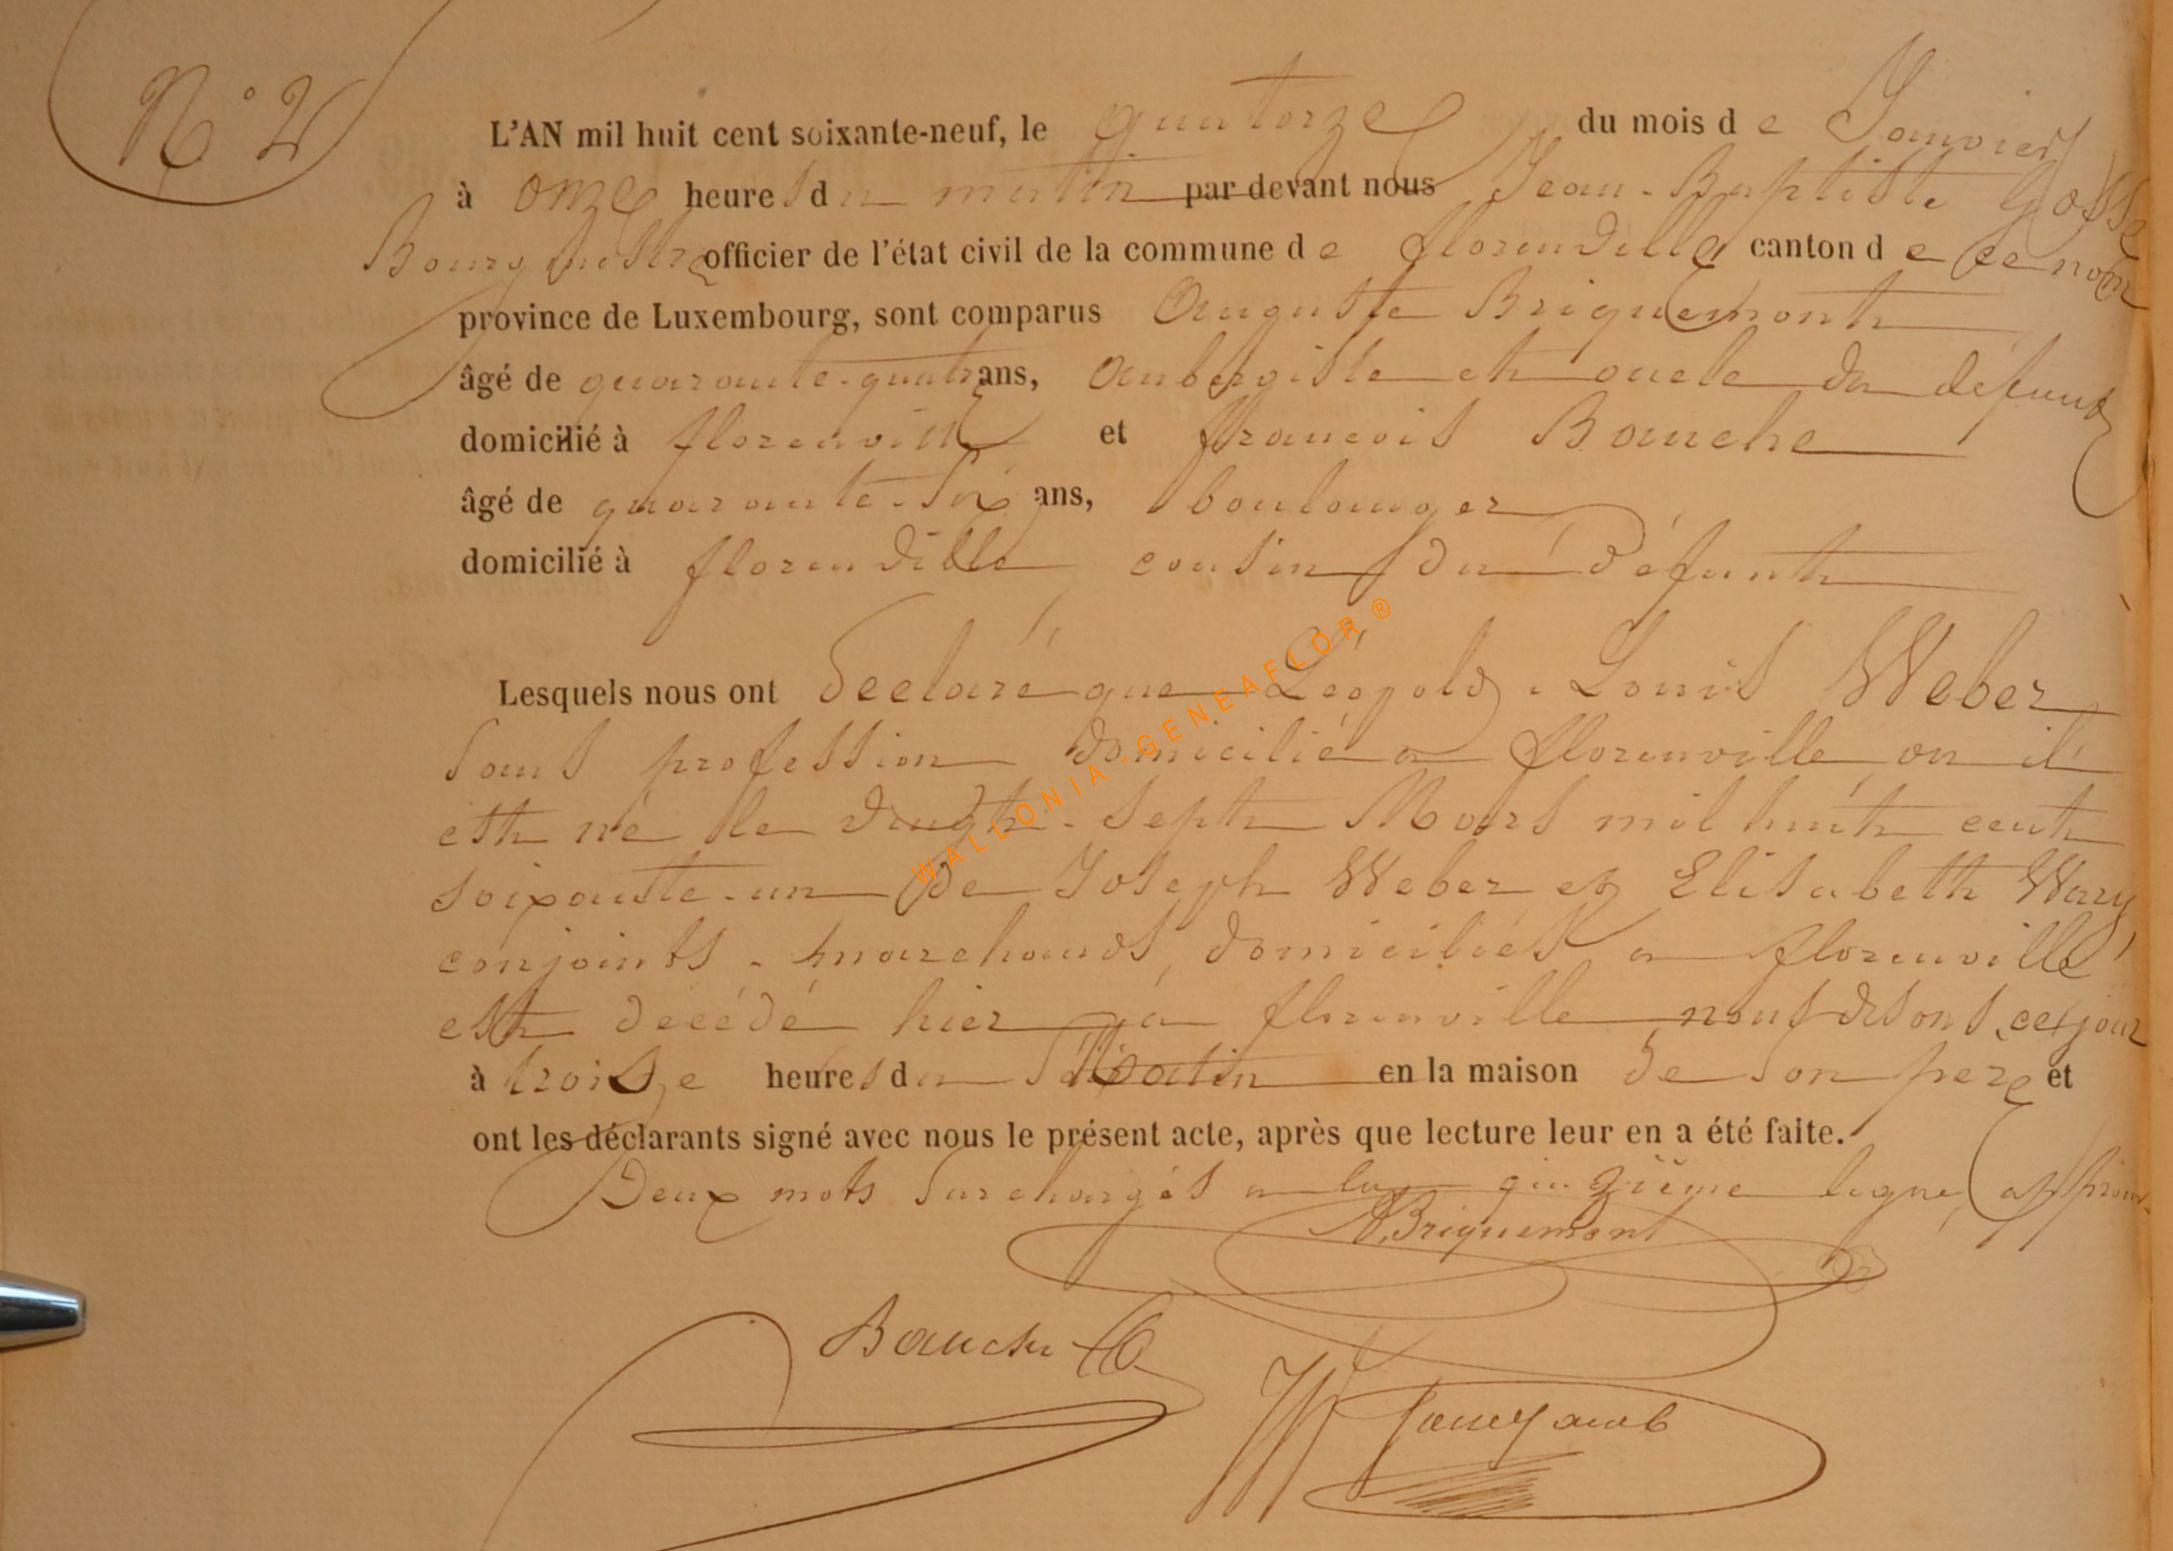 N° 2
L'AN mil huit cent soixante-neuf, le quatorze du mois de Janvier
à onze heures du matin par devant nous Jean-Baptiste Gosse
Bourgmestre officier de l'état civil de la commune de florenville canton de ce nom
province de Luxembourg, sont comparus Auguste Briquemont
âgé de quarante-quatre ans, Aubergiste et oncle du défunt
domicilié à florenville et François Bauche
âgé de quarante-six ans, boulanger
domicilié à florenville cousin du défunt
Lesquels nous ont déclaré que Léopold-Louis Weber
sans profession domicilié à florenville où il
est né le vingt-sept Mars mil huit cent
soixante-un de Joseph Weber et Elisabeth Wary
conjoints marchands, domiciliés à florenville
est décédé hier à florenville nous disons, ce jour
à trois heures du Matin en la maison de son père et
ont les déclarants signé avec nous le présent acte, après que lecture leur en a été faite.
Deux mots surchargés à la quinzième ligne, approuv.
A. Briquemont
Bauche
WALLONIA-GENEAFLOR®